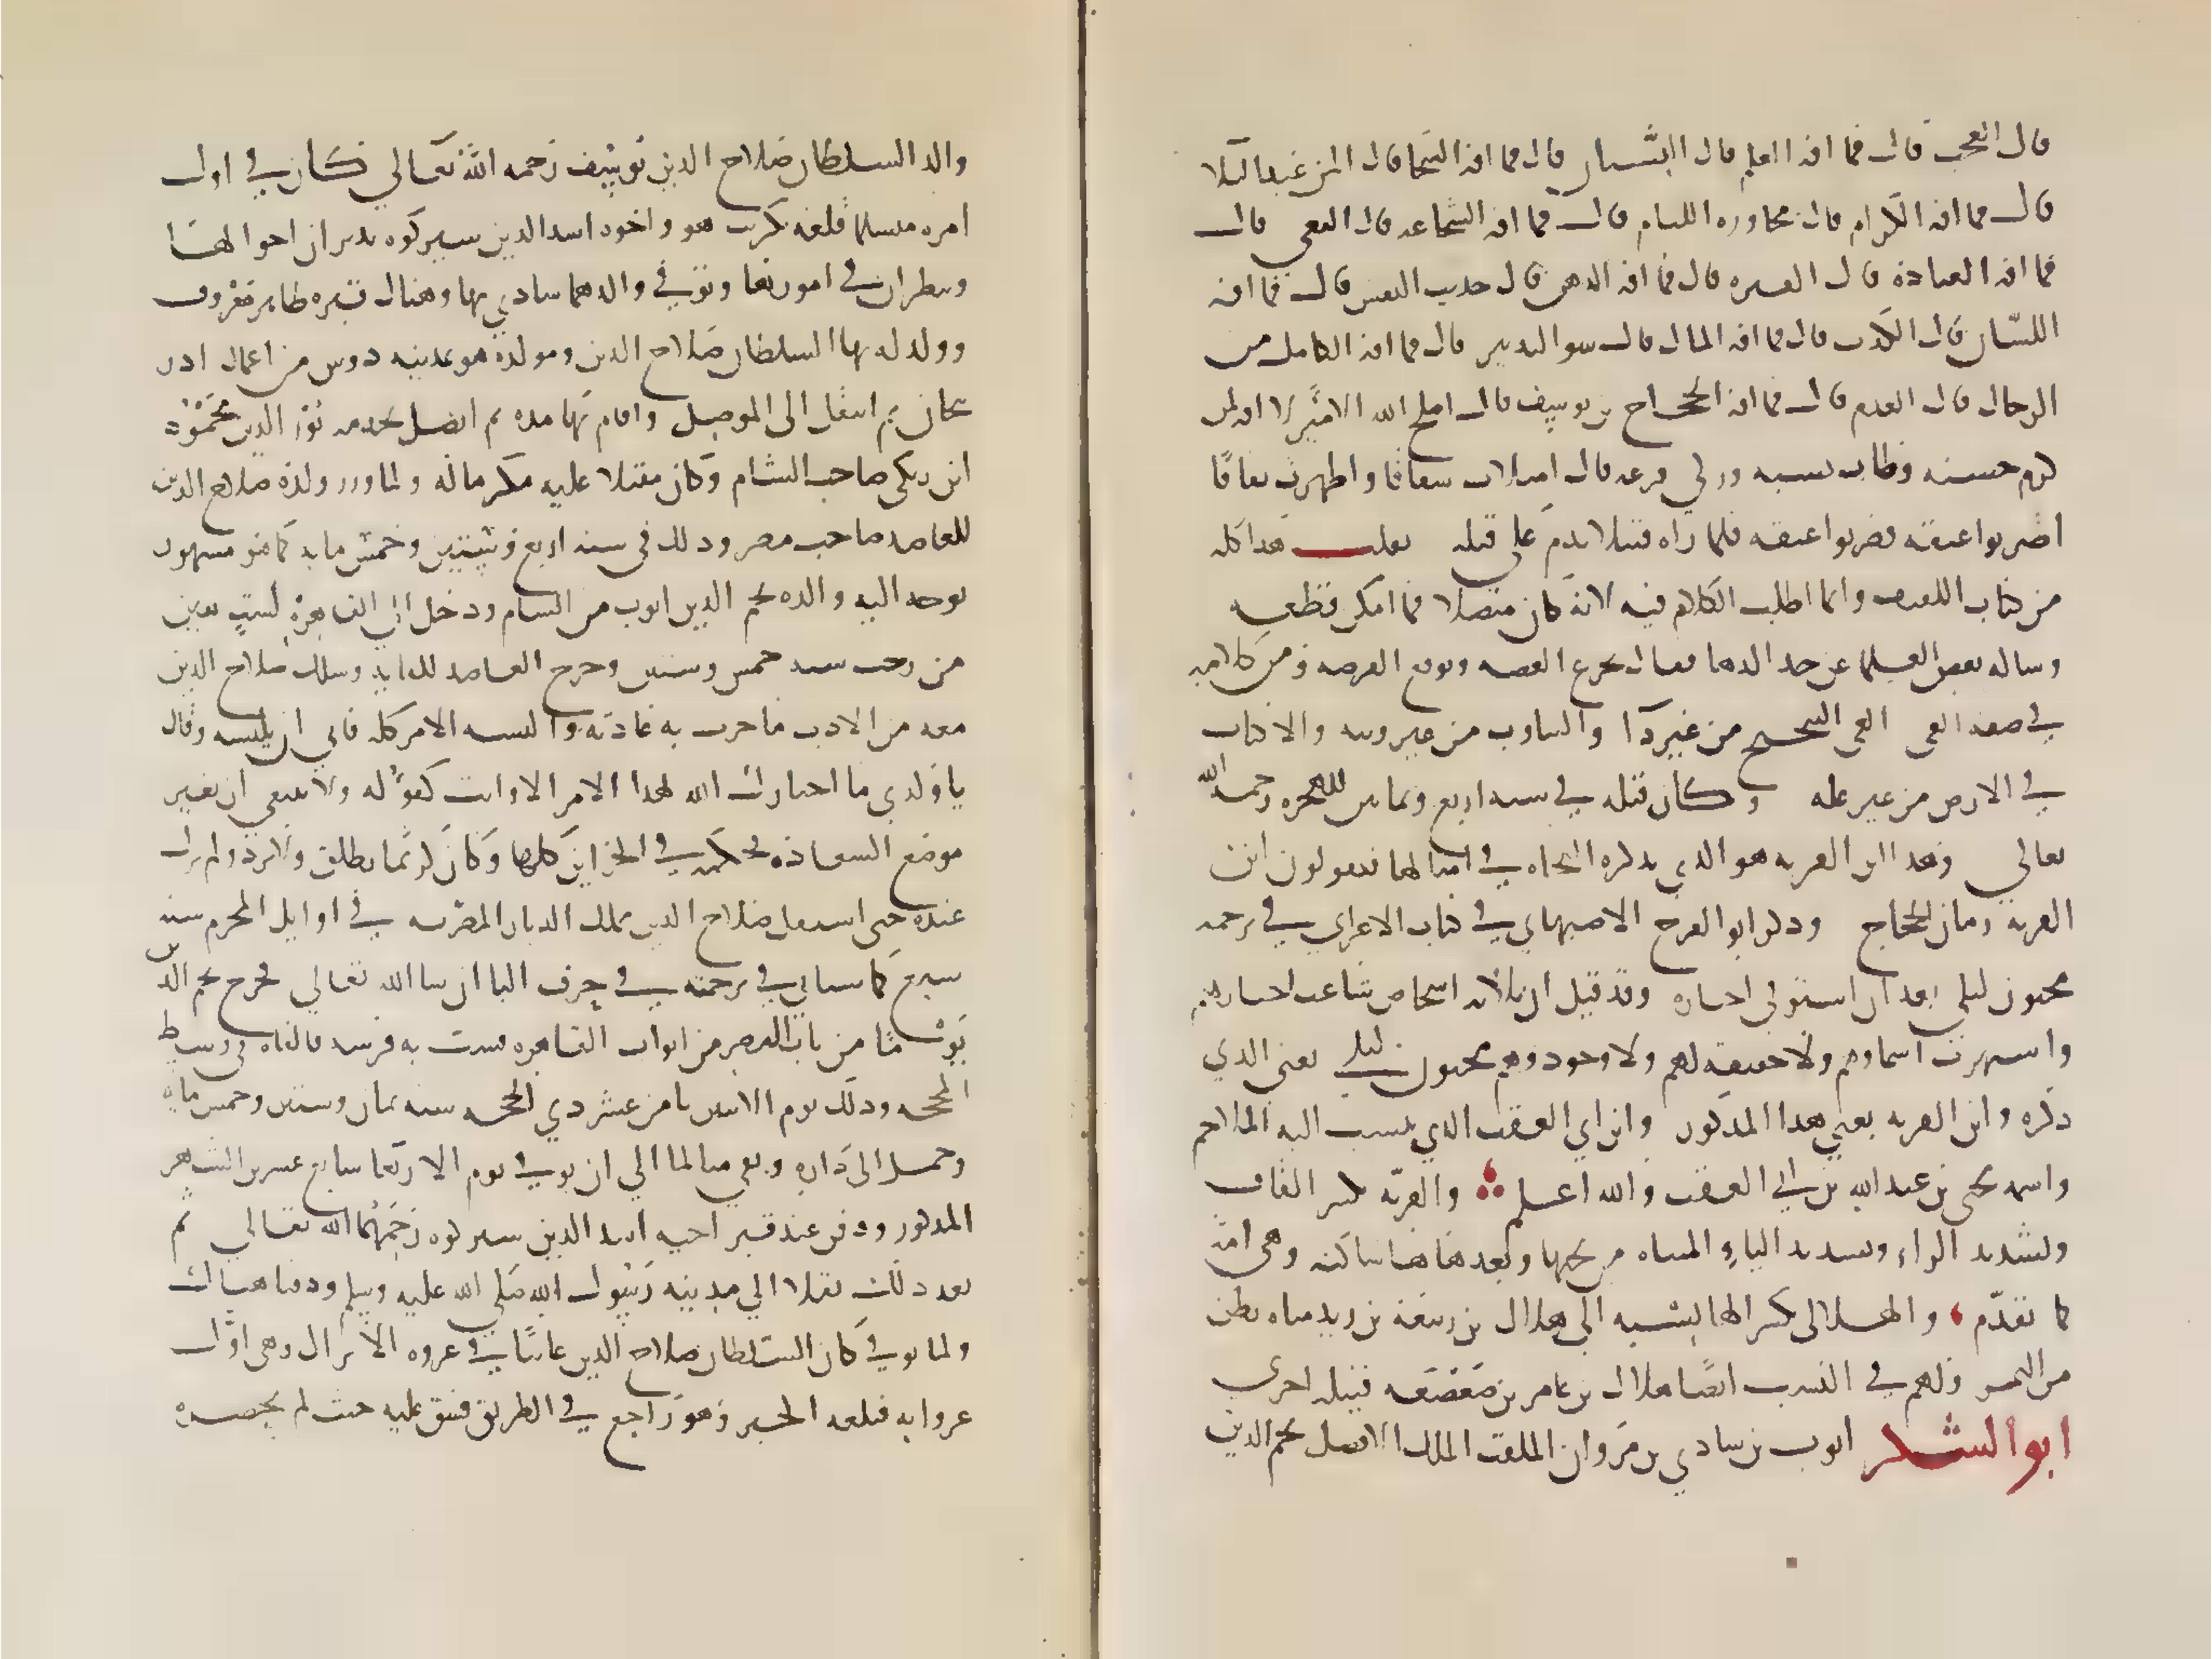 قال العجب قال فما افة العلم قال النسيان قال فما افة السخا قال المن عند البلا
قال فما افة الكرام قال مجاورة اللئام قال فما افة الشجاعة قال البغي قال
فما افة العبادة قال الفترة قال فما افة الذهن قال حديث النفس قال فما افة
اللسان قال الكذب قال فما افة المال قال سو التدبير قال فما افة الكامل من
الرجال قال العدم قال فما افة الحجاج بن يوسف قال اصلح الله الامير لا افة لمن
كرم حسبه وطاب نسبه وزكي فرعه قال امتلات شقاقا واظهرت نفاقا
اضربوا عنقه فضربوا عنقه فلما راه قتيلا ندم على قتله نقلت هذا كله
من كتاب اللفيف وانما اطلت الكلام فيه لانه كان متصلا فما امكن قطعه
وساله بعض العلما عن حد الدها فقال تجرع الغصه وتوقع الفرصه ومن كلامه
في صفة العي العي التنحنح من غير دا والتثاوب من غير ريبه والاكباب
في الارض من غير علة وكان قتله في سنه اربع وثمانين للهجره رحمه الله
تعالي وهذا ابن القريه هو الذي يذكره النحاه في امثالها فيقولون ابن
القريه زمان الحجاج وذكر ابو الفرج الاصبهاني في كتاب الاغاني في ترجمه
مجنون ليلى بعد ان استوفى اخباره وقد قيل ان ثلاثه اشخاص شاعت اخبارهم
واشتهرت اسماوهم ولا حقيقة لهم ولا وجود وهم مجنون ليلى يعني الذي
ذكره وابن القريه يعني هذا المذكور وابن ابي العقب الذي ينسب اليه الملاحم
واسمه يحيى بن عبد الله بن ابي العقب والله اعلم والقريه بكسر القاف
وتشديد الراء وتشديد الياء المثناه من تحتها وبعدها ها ساكنه وهي امه
كما تقدم والهلالي بكسر الها نسبه الى هلال بن ربيعة بن زيد مناه بطن
من النمر ولهم في النسب ايضا هلال بن عامر بن صعصعه قبيله اخرى
ابو الشكر ايوب بن شادي بن مروان الملقب الملك الافضل نجم الدين
والد السلطان صلاح الدين يوسف رحمه الله تعالي كان في اول
امره متسلما قلعه تكريت هو واخوه اسد الدين شيركوه يدبران احوالها
وينظران في امورها وتوفي والدهما شادي بها وهناك قبره ظاهر معروف
وولد له بها السلطان صلاح الدين ومولده هو بمدينه دوين من اعمال اذر
بيجان ثم انتقل الى الموصل واقام بها مده ثم اتصل بخدمه نور الدين محمود
ابن زنكي صاحب الشام وكان مقبلا عليه مكرما له ولما وزر ولده صلاح الدين
للعاضد صاحب مصر وذلك في سنه اربع وستين وخمس مايه كما هو مشهور
توجه اليه والده نجم الدين ايوب من الشام ودخل الي القاهرة لست بقين
من رجب سنه خمس وستين وخرج العاضد للقايه وسلك صلاح الدين
معه من الادب ما جرت به عادته والبسه الامر كله فابي ان يلبسه وقال
يا ولدي ما اختارك الله لهذا الامر الا وانت كفؤ له ولا ينبغي ان تغير
موضع السعاده فحكمه في الخزاين كلها وكان كريما يطلق ولا يرد ولم يزل
عنده حتى استقل صلاح الدين بملك الديار المصريه في اوايل المحرم سنه
سبع كما سياتي في ترجمته في حرف اليا ان شا الله تعالي فخرج نجم الدين
يوما من باب النصر من ابواب القاهره فشب به فرسه فالقاه في وسط
المحجه وذلك يوم الاثنين ثامن عشر ذي الحجه سنه ثمان وستين وخمس مايه
وحمل الى داره وبقي متالما الي ان توفي يوم الاربعا سابع عشرين الشهر
المذكور ودفن عند قبر اخيه اسد الدين شيركوه رحمهما الله تعالي ثم
بعد ذلك نقلا الي مدينه رسول الله صلي الله عليه وسلم ودفنا هناك
ولما توفي كان السلطان صلاح الدين غائبا في غزوه الكرك وهي اول
غزواته فبلغه الخبر وهو راجع في الطريق فشق عليه حيث لم يحضره